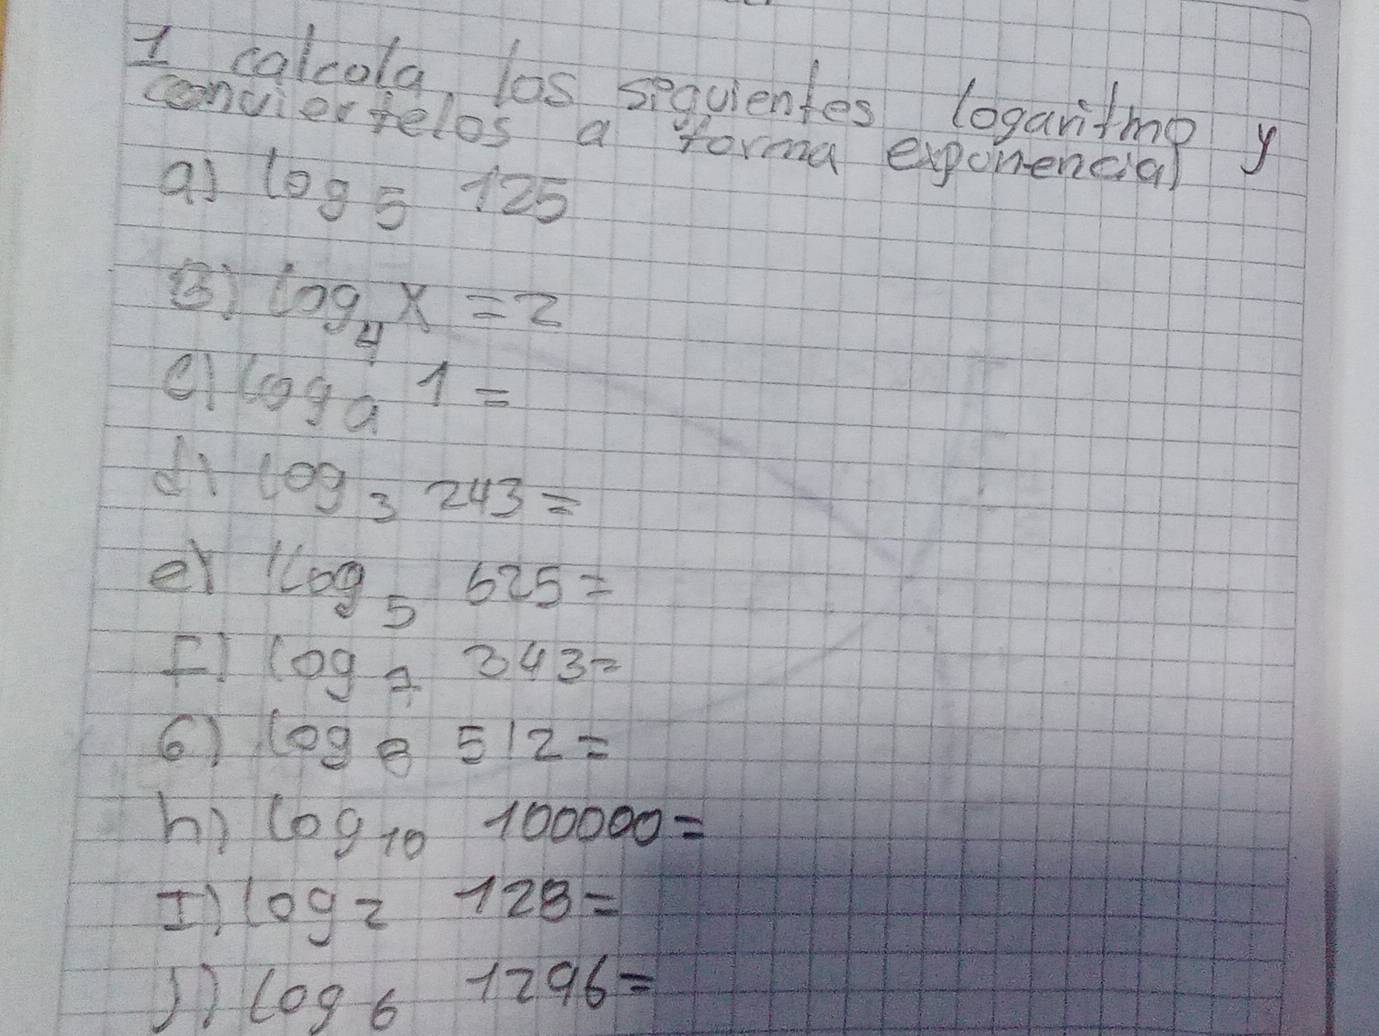 1 calcola los siguientes logaritmo y
conviertelos a forma exponencial
a) log₅ 125
B) log₄ x = 2
c) logₐ 1 =
d) log₃ 243 =
e) log₅ 625 =
F) log₇ 343 =
G) log₈ 512 =
h) log₁₀ 100000 =
I) log₂ 128 =
J) log₆ 1296 =